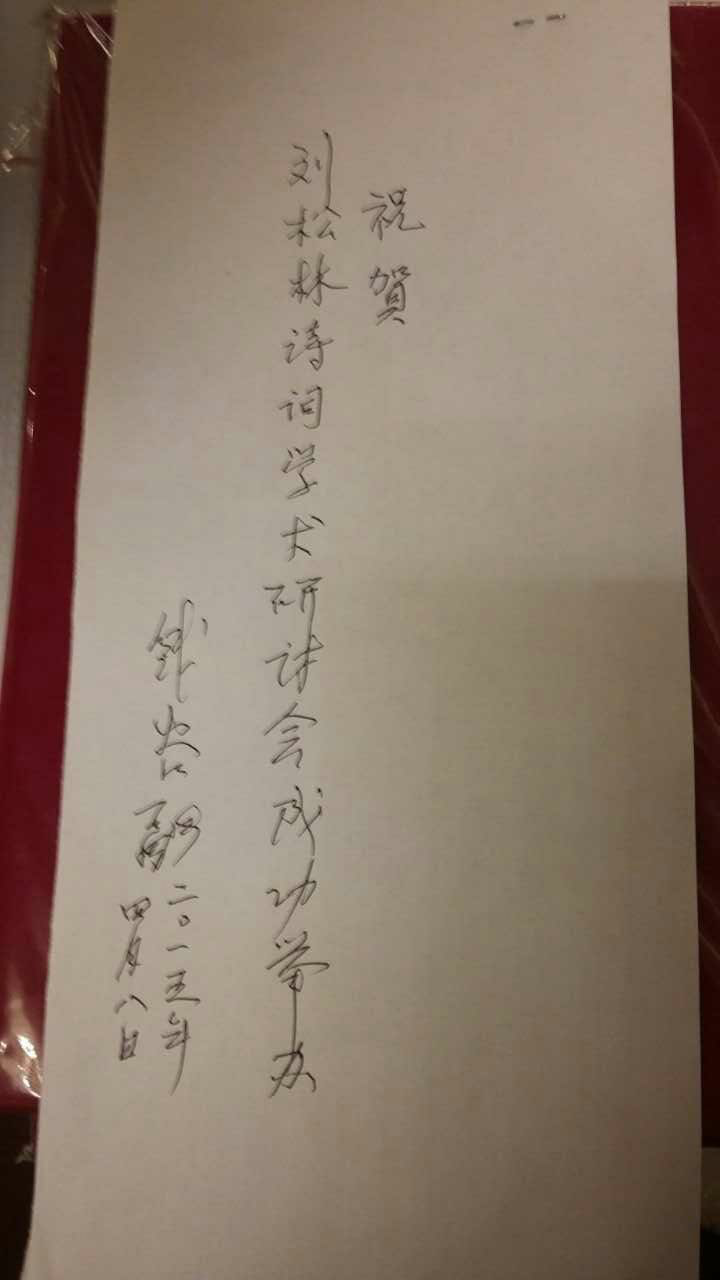 祝賀
刘松林诗词学术研讨会成功举办
钱谷融
二〇一五年
四月八日